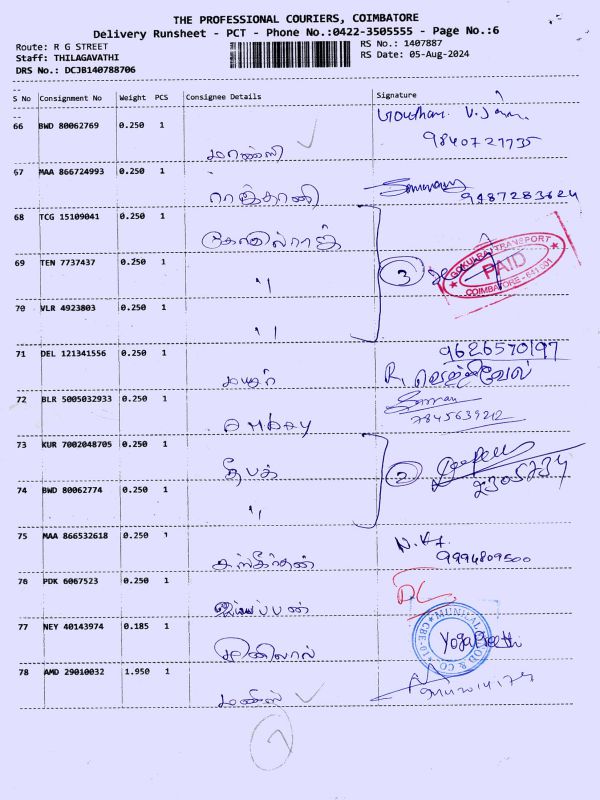 THE PROFESSIONAL COURIERS, COIMBATORE
Delivery Runsheet - PCT - Phone No.:0422-3505555 - Page No.:6
Route: R G STREET RS No.: 1407887
Staff: THILAGAVATHI RS Date: 05-Aug-2024
DRS No.: DCJB140788706
S No Consignment No Weight PCS Consignee Details Signature
66 BWD 80062769 0.250 1
9840721735
67 MAA 866724993 0.250 1
ராஜ்தானி 9487283624
68 TCG 15109041 0.250 1
கோவில்ராஜ்
69 TEN 7737437 0.250 1 "
3
GOKULRAJ TRANSPORT
PAID
COIMBATORE - 641 001
70 VLR 4923803 0.250 1
"
9626570197
71 DEL 121341556 0.250 1
மயூர் R. வெற்றிவேல்
72 BLR 5005032933 0.250 1
7845639212
73 KUR 7002048705 0.250 1
தீபக் 2
74 BWD 80062774 0.250 1
"
75 MAA 866532618 0.250 1
9994809500
76 PDK 6067523 0.250 1
ஐயப்பன்
77 NEY 40143974 0.185 1
முனிலால் Yoga Preethi
78 AMD 29010032 1.950 1